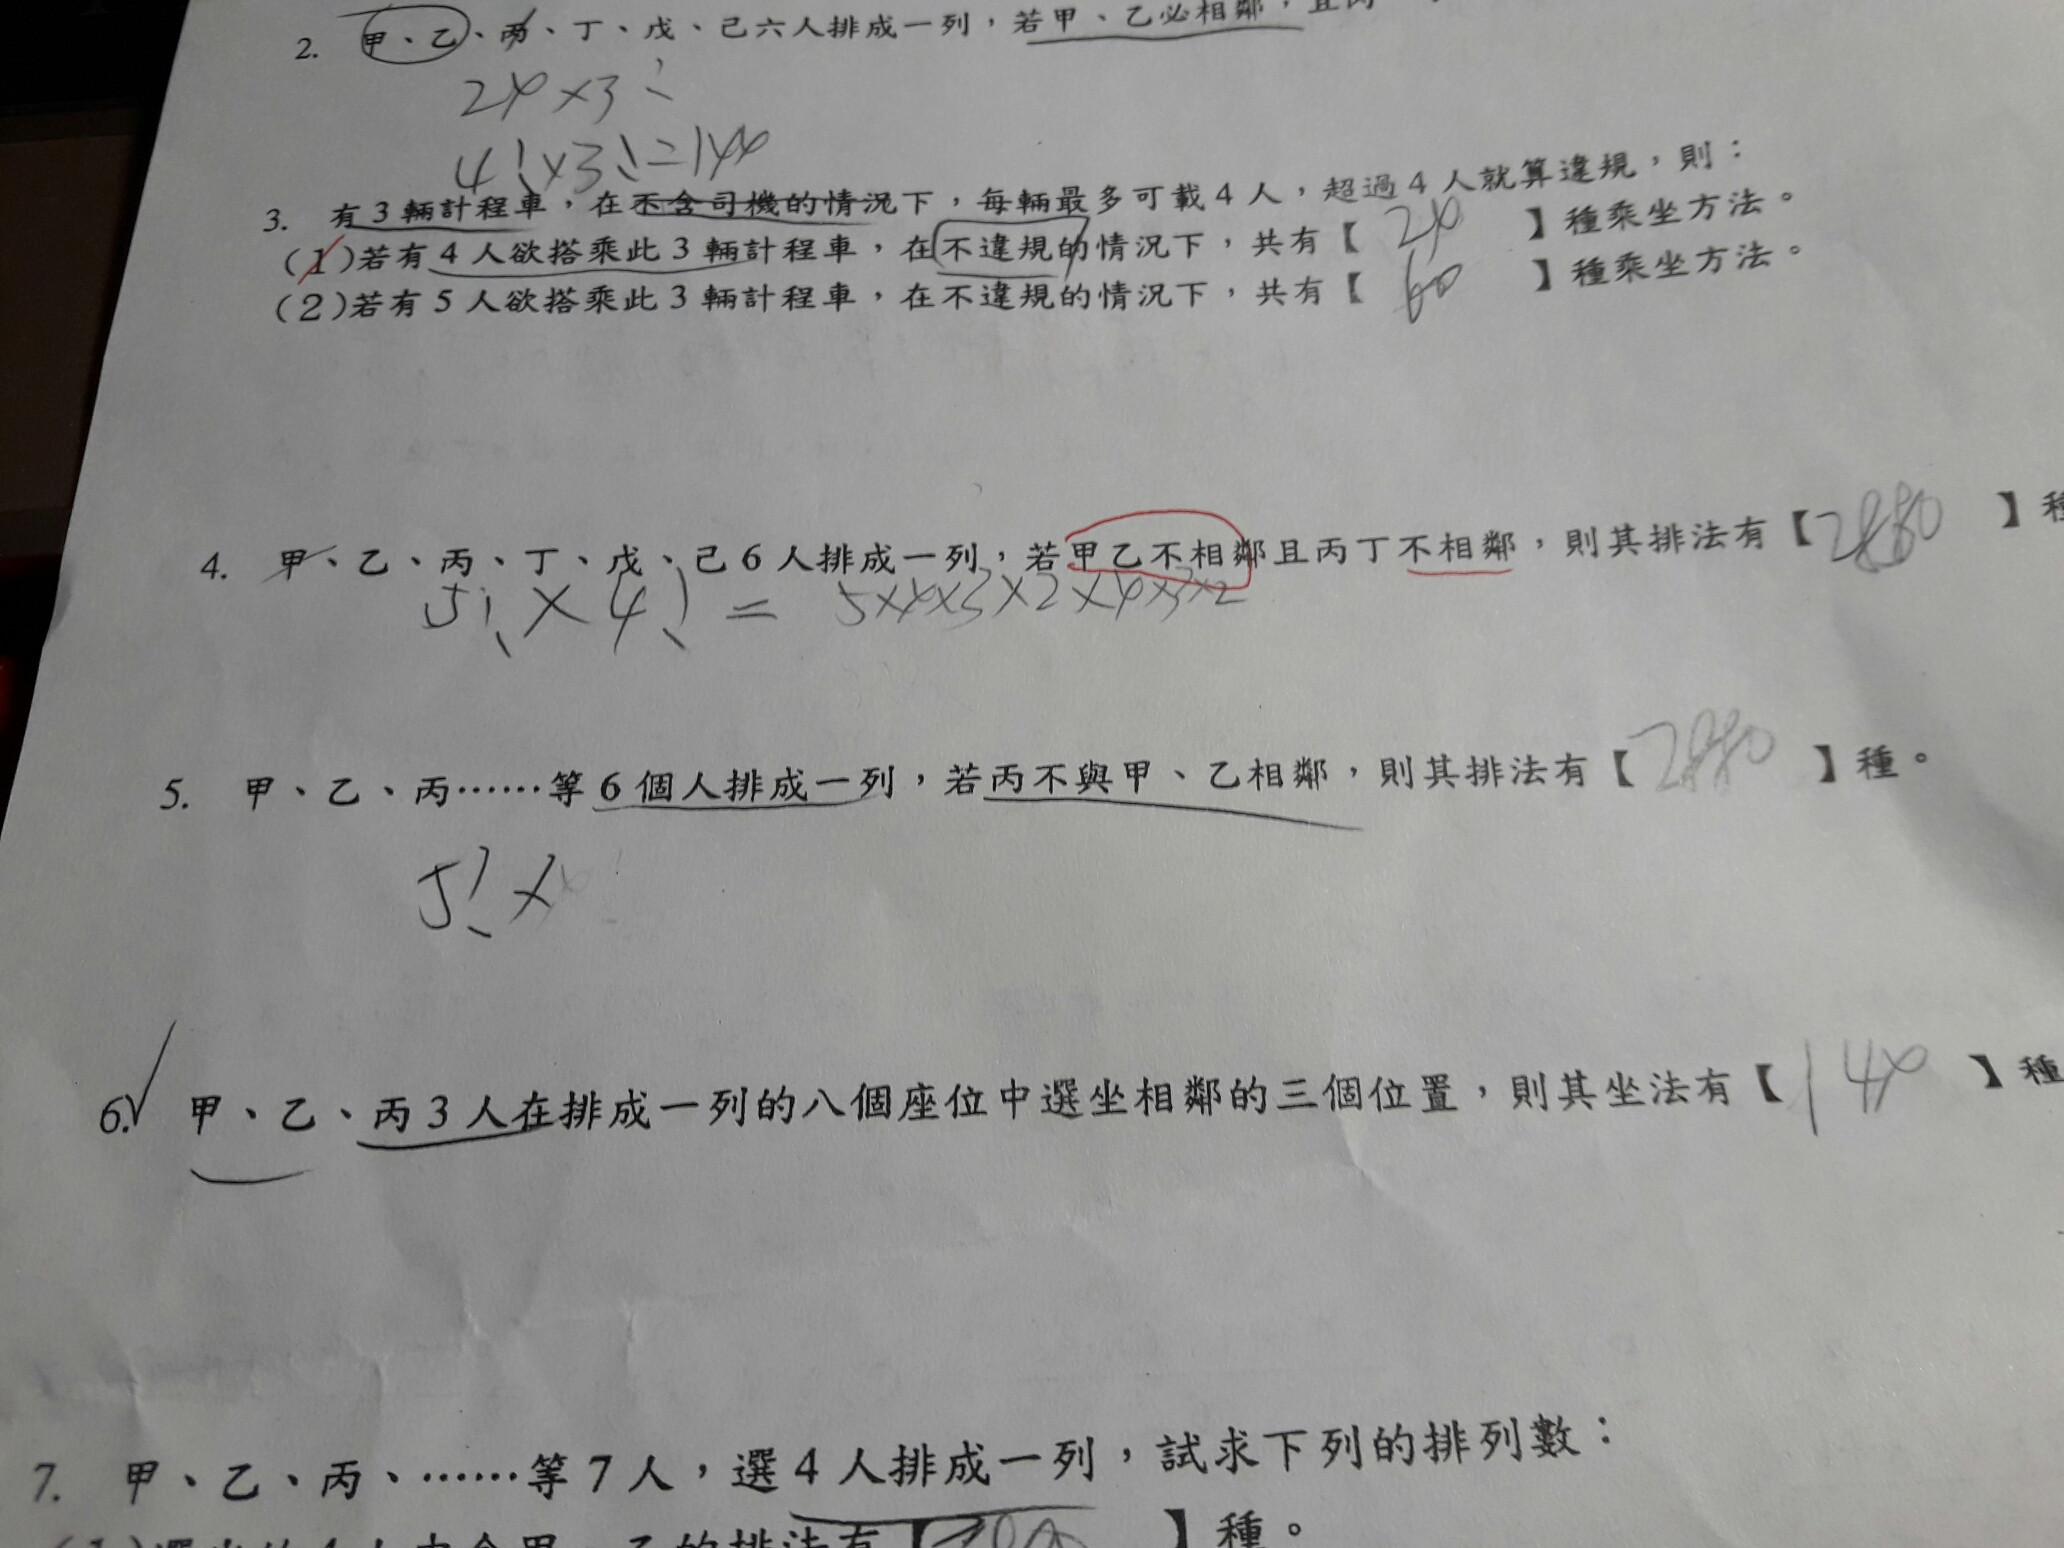 2. 甲、乙、丙、丁、戊、己六人排成一列，若甲、乙必相鄰，且丙
24×3!
4!×3!=144
3. 有3輛計程車，在不含司機的情況下，每輛最多可載4人，超過4人就算違規，則：
(1)若有4人欲搭乘此3輛計程車，在不違規的情況下，共有【 24 】種乘坐方法。
(2)若有5人欲搭乘此3輛計程車，在不違規的情況下，共有【 60 】種乘坐方法。
4. 甲、乙、丙、丁、戊、己6人排成一列，若甲乙不相鄰且丙丁不相鄰，則其排法有【 2880 】種
5!×4!=5×4×3×2×4×3×2
5. 甲、乙、丙……等6個人排成一列，若丙不與甲、乙相鄰，則其排法有【 2880 】種。
5!×
6. 甲、乙、丙3人在排成一列的八個座位中選坐相鄰的三個位置，則其坐法有【 144 】種
7. 甲、乙、丙、……等7人，選4人排成一列，試求下列的排列數：
的排法有【 】種。